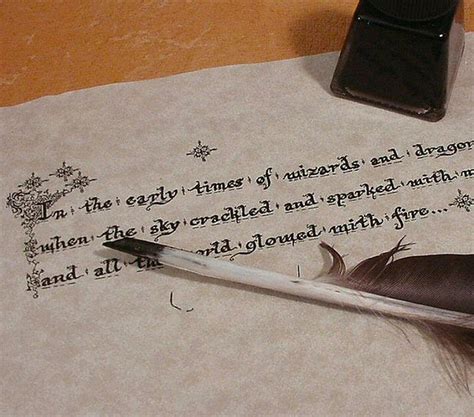 In the early times of wizards and dragon
when the sky crackled and sparked with m
and all the world glowed with fire...